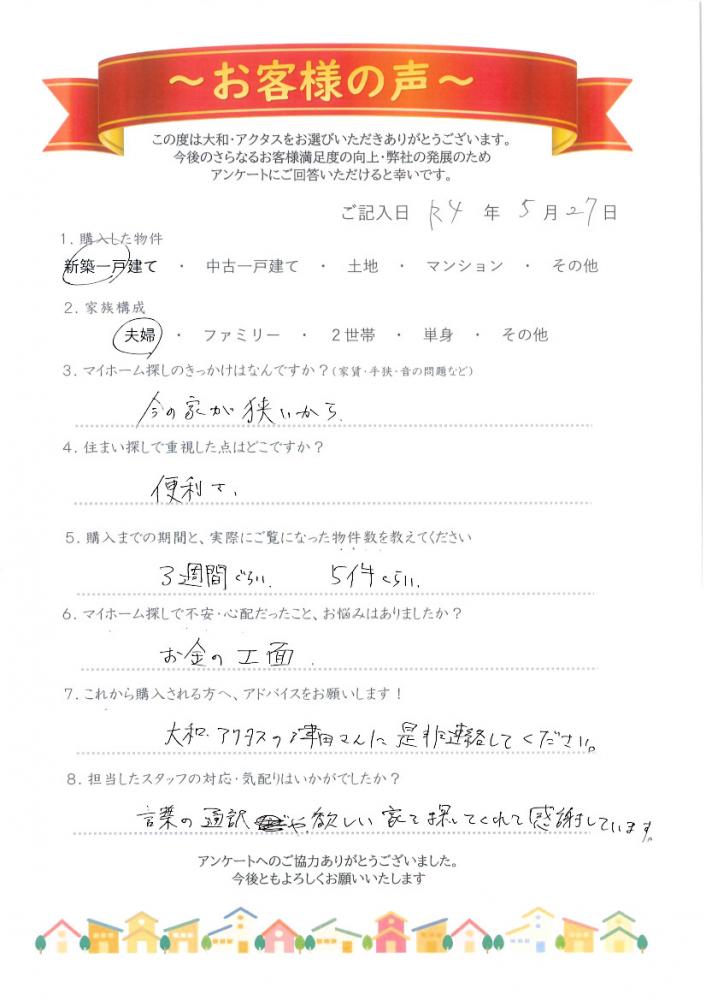 ～お客様の声～
この度は大和・アクタスをお選びいただきありがとうございます。
今後のさらなるお客様満足度の向上・弊社の発展のため
アンケートにご回答いただけると幸いです。
ご記入日 R4 年 5 月 27 日
1. 購入した物件
新築一戸建て ・ 中古一戸建て ・ 土地 ・ マンション ・ その他
2. 家族構成
夫婦 ・ ファミリー ・ 2世帯 ・ 単身 ・ その他
3. マイホーム探しのきっかけはなんですか？(家賃・手狭・音の問題など)
今の家が狭いから.
4. 住まい探しで重視した点はどこですか？
便利さ.
5. 購入までの期間と、実際にご覧になった物件数を教えてください
3週間ぐらい. 5件くらい.
6. マイホーム探しで不安・心配だったこと、お悩みはありましたか？
お金の工面.
7. これから購入される方へ、アドバイスをお願いします！
大和・アクタスの津田さんに是非連絡してください。
8. 担当したスタッフの対応・気配りはいかがでしたか？
言葉の通訳や欲しい家を探してくれて感謝しています。
アンケートへのご協力ありがとうございました。
今後ともよろしくお願いいたします